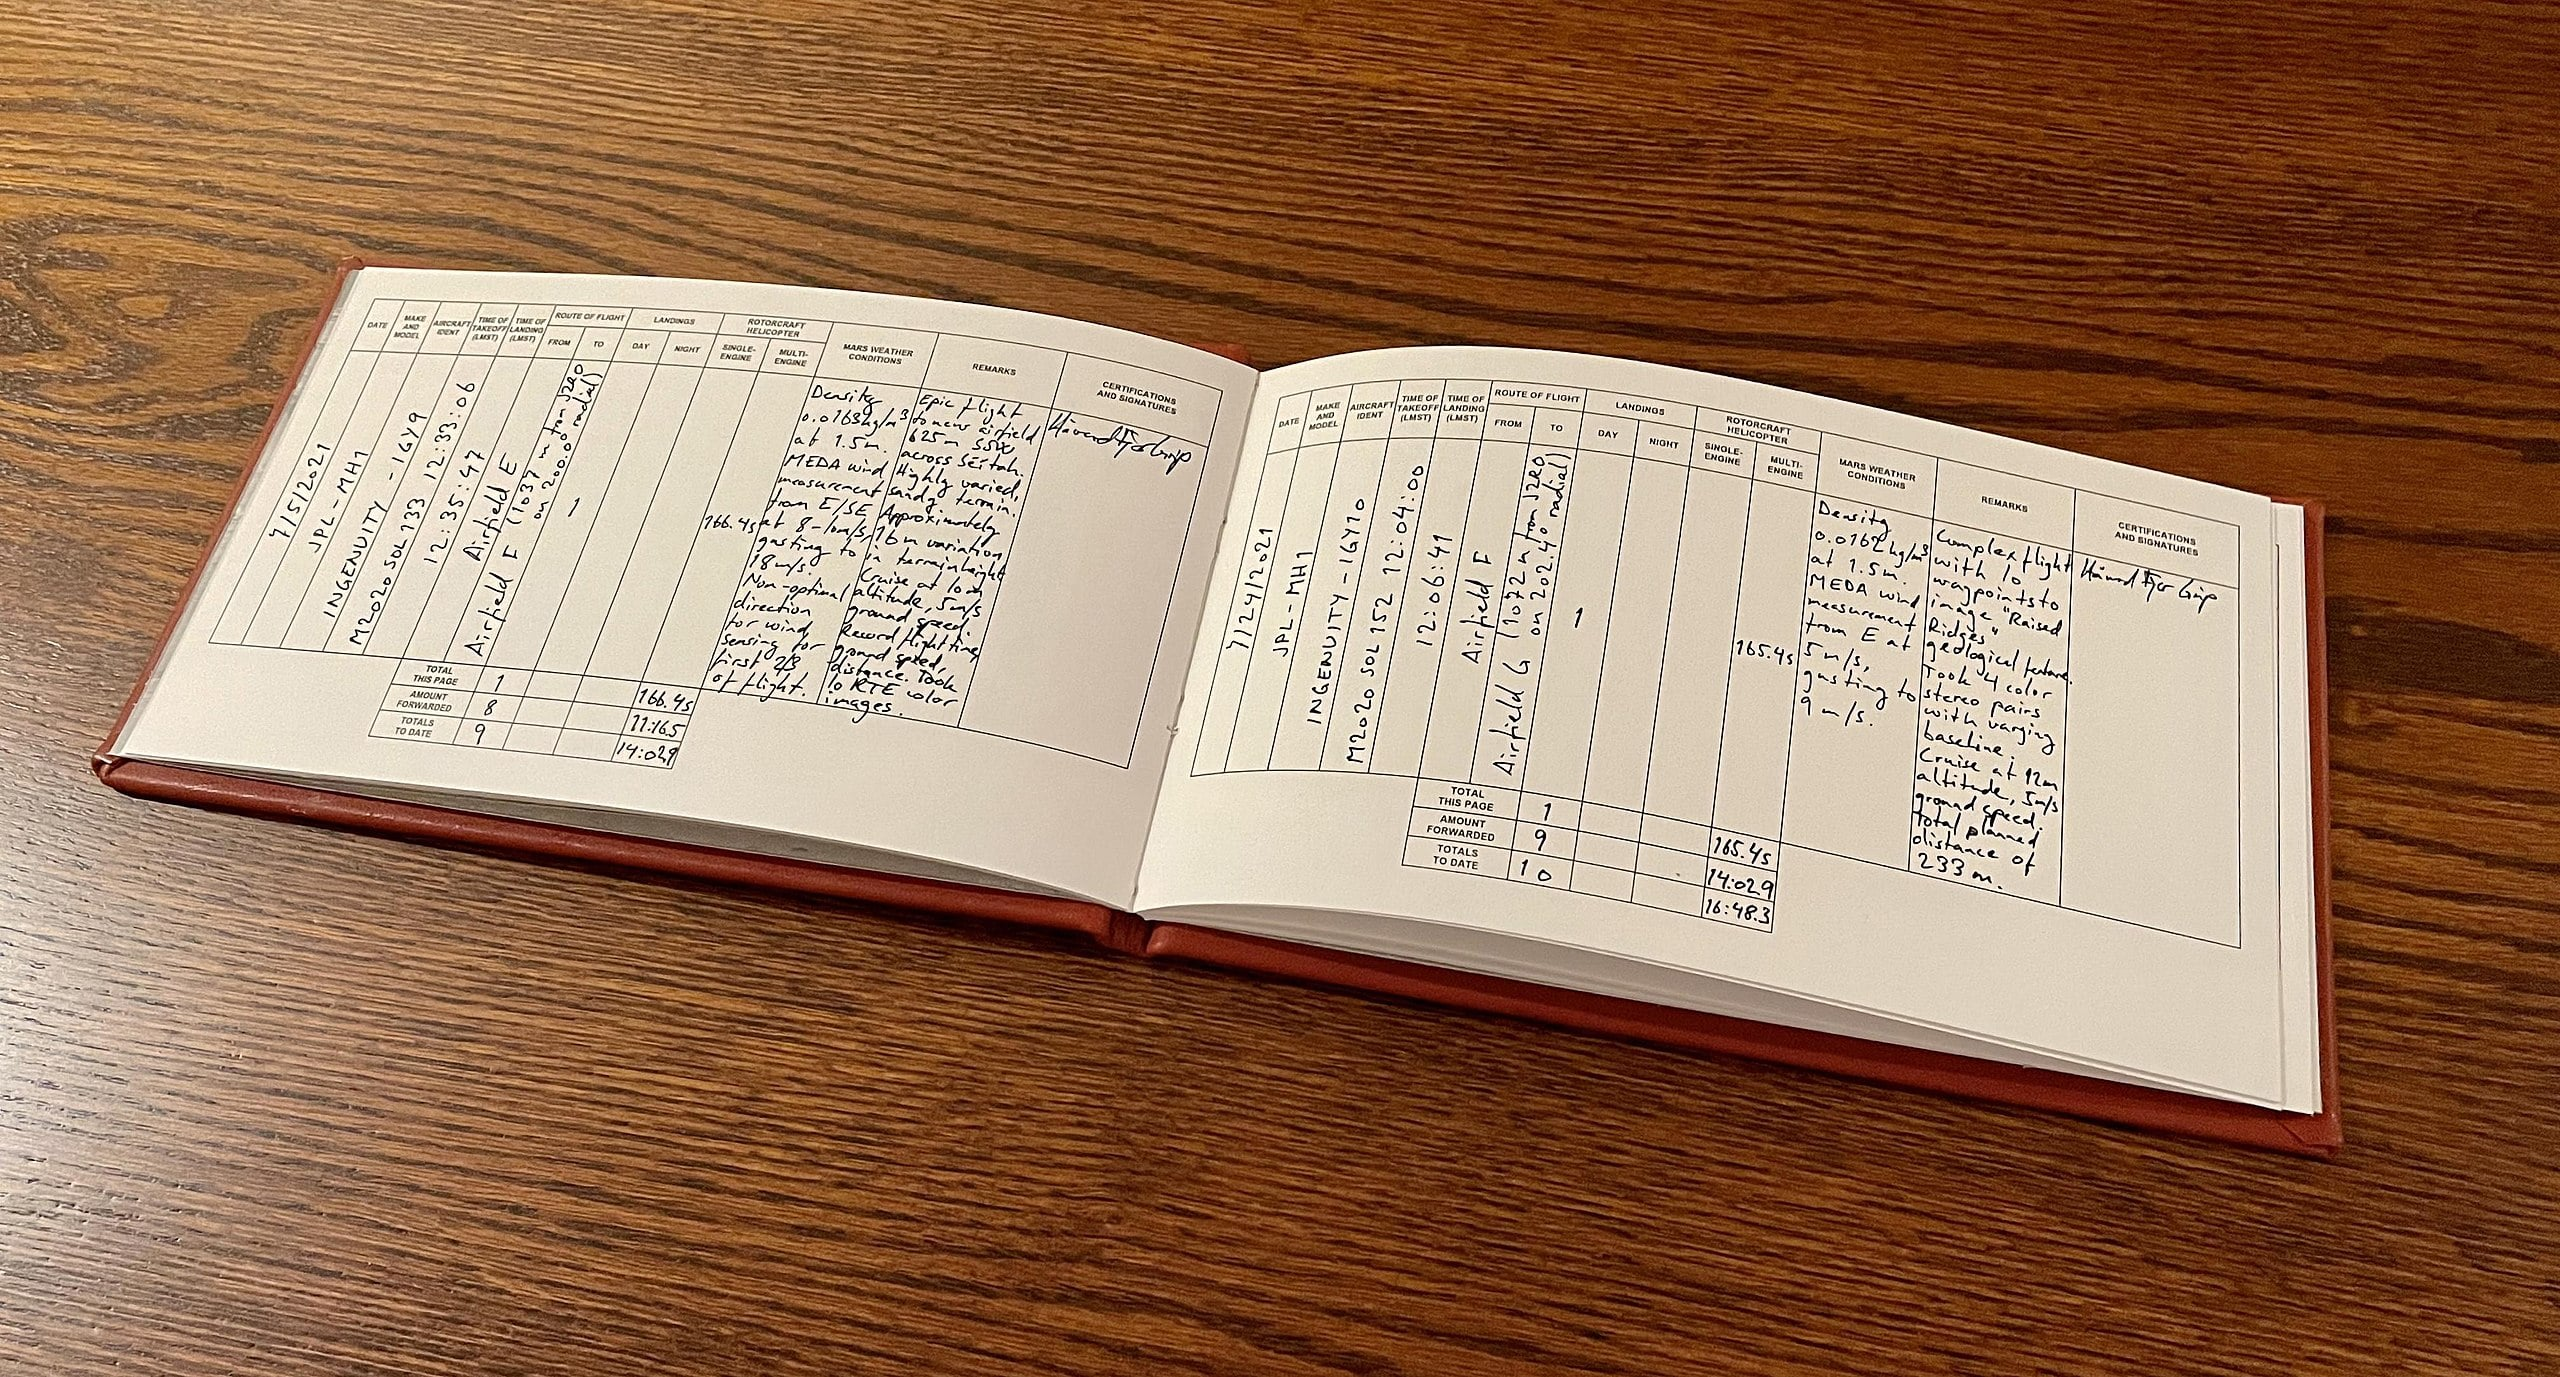 DATE
MAKE
AND
MODEL
AIRCRAFT
IDENT
TIME OF
TAKEOFF
(LMST)
TIME OF
LANDING
(LMST)
ROUTE OF FLIGHT
FROM
TO
LANDINGS
DAY
NIGHT
ROTORCRAFT
HELICOPTER
SINGLE-
ENGINE
MULTI-
ENGINE
MARS WEATHER
CONDITIONS
REMARKS
CERTIFICATIONS
AND SIGNATURES
7/5/2021
JPL-MH1
INGENUITY - IGY9
M2020 SOL 133 12:33:06
12:35:47
Airfield E
Airfield F (1037 m from JZRO
on 200.0° radial)
1
166.4s
Density
0.0163kg/m³
at 1.5m.
MEDA wind
measurement
from E/SE
at 8-10m/s,
gusting to
18m/s.
Non-optimal
direction
for wind
sensing for
first 2/3
of flight.
Epic flight
to new airfield
625m SSW
across Séítah.
Highly varied,
sandy terrain.
Approximately
16m variation
in terrain height
Cruise at 10m
altitude, 5m/s
ground speed.
Record flight time,
ground speed,
distance. Took
10 RTE color
images.
Håvard Fjær Grip
TOTAL
THIS PAGE
1
166.4s
AMOUNT
FORWARDED
8
11:16.5
TOTALS
TO DATE
9
14:02.9
DATE
MAKE
AND
MODEL
AIRCRAFT
IDENT
TIME OF
TAKEOFF
(LMST)
TIME OF
LANDING
(LMST)
ROUTE OF FLIGHT
FROM
TO
LANDINGS
DAY
NIGHT
ROTORCRAFT
HELICOPTER
SINGLE-
ENGINE
MULTI-
ENGINE
MARS WEATHER
CONDITIONS
REMARKS
CERTIFICATIONS
AND SIGNATURES
7/24/2021
JPL-MH1
INGENUITY - IGY10
M2020 SOL 152 12:04:00
12:06:41
Airfield F
Airfield G (1072 m from JZRO
on 202.4° radial)
1
165.4s
Density
0.0162kg/m³
at 1.5m.
MEDA wind
measurement
from E at
5m/s,
gusting to
9m/s.
Complex flight
with 10
waypoints to
image "Raised
Ridges"
geological feature.
Took 4 color
stereo pairs
with varying
baseline.
Cruise at 12m
altitude, 5m/s
ground speed.
Total planned
distance of
233 m.
Håvard Fjær Grip
TOTAL
THIS PAGE
1
165.4s
AMOUNT
FORWARDED
9
14:02.9
TOTALS
TO DATE
10
16:48.3